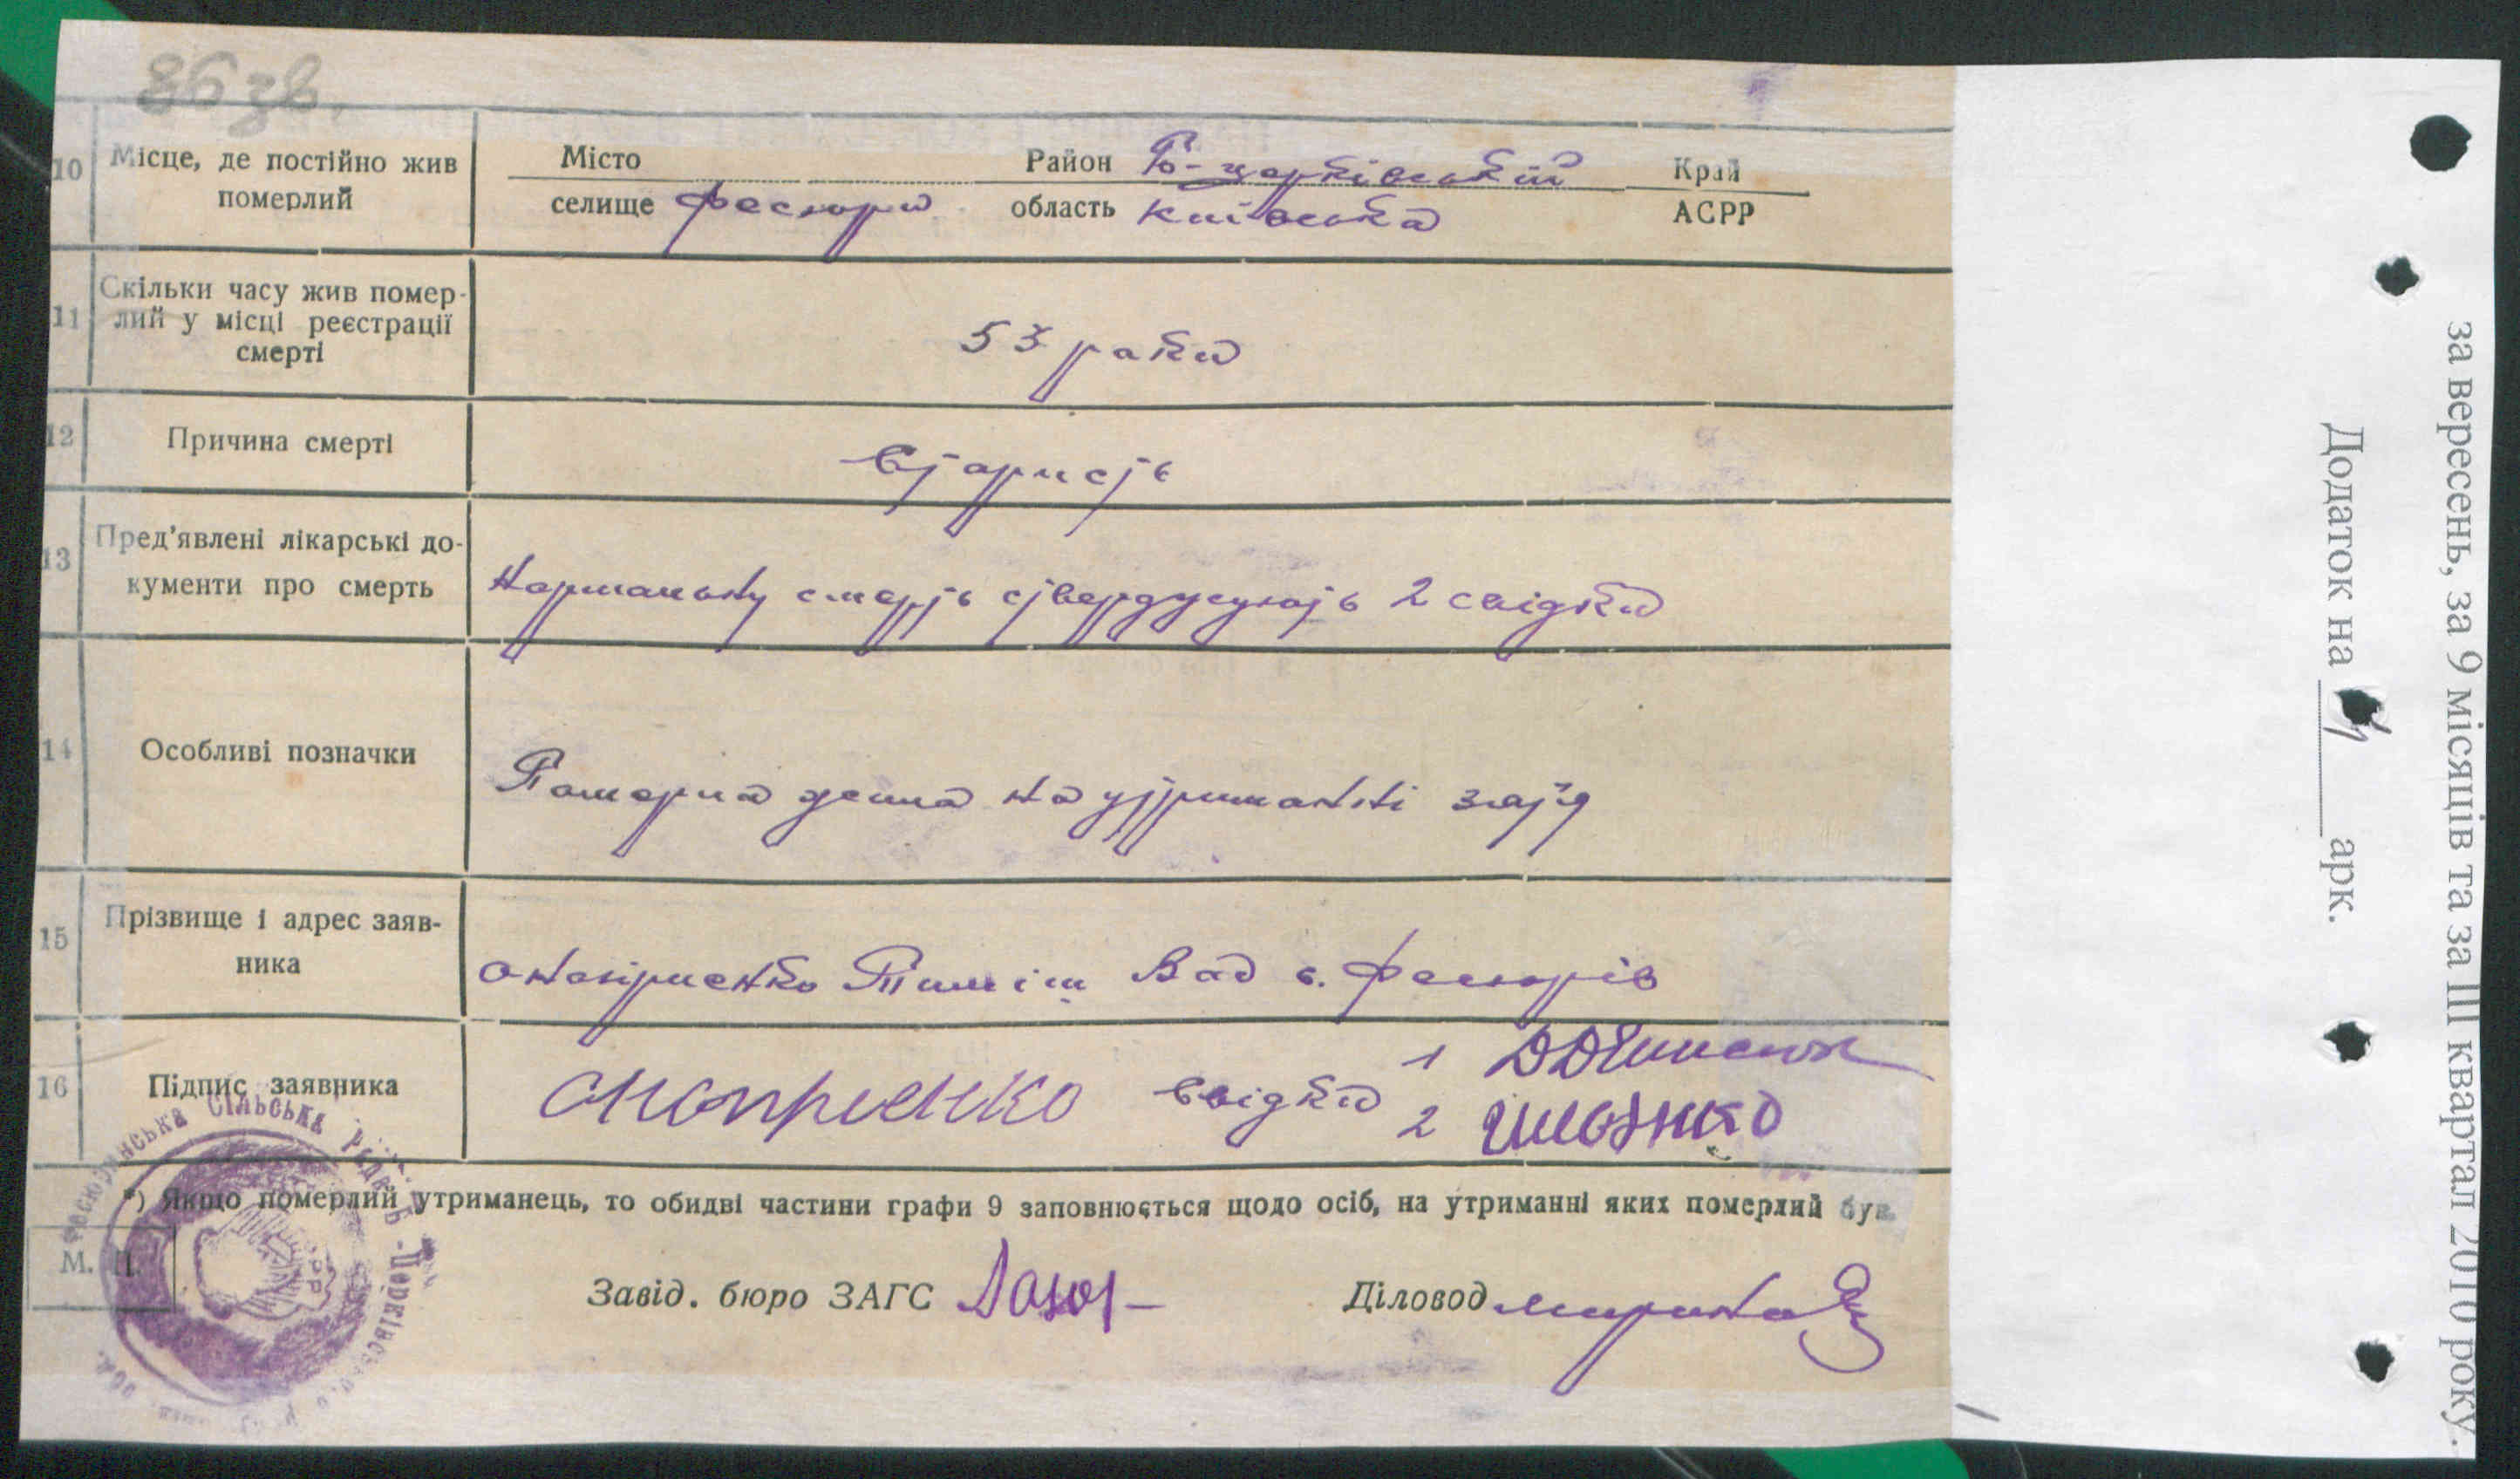 86 зв.
10 Місце, де постійно жив померлий
Місто Район Б-церківській Край
селище Фесюри область київська АСРР
11 Скільки часу жив помер-
лий у місці реєстрації
смерті
53 роки
12 Причина смерті
Старисть
13 Пред'явлені лікарські до-
кументи про смерть
Нормальну смерть ствердужують 2 свідки
14 Особливі позначки
Померла жила на утриманні зятя
15 Прізвище і адрес заяв-
ника
онопрієнко с. Фесюрів
16 Підпис заявника
Оноприенко свідки 1
2
*) Якщо померлий утриманець, то обидві частини графи 9 заповнюється щодо осіб, на утриманні яких померлий був.
М. П.
Завід. бюро ЗАГС
Діловод
сільська рада Б-Церківськ
Додаток на 4 арк.
за вересень, за 9 місяців та за III квартал 2010 року.